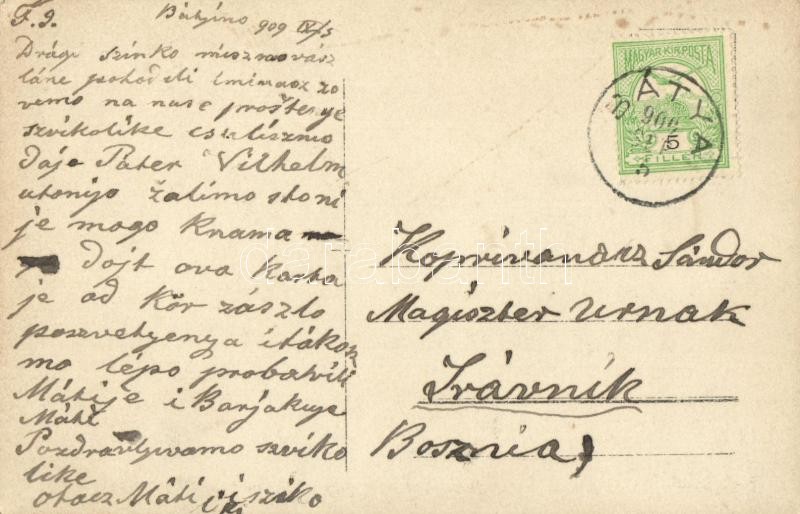 F. I.
Bátyino 909 IX/5
Drági szinko mi szmo vász
láne pohodili i mi vász zo
vemo na nase prostenye
szvikolike csuli szmo
da je Páter Vilhelm
utonijo žalimo sto ni
je mogo k nama
dojt ova karta
je od Kör zászlo
poszvetyenya i tákosz
mo lépo probavili
Mátije i Barjaktye
Máti
Pozdravlyivamo szviko
like
otacz Máti i sziko
MAGYAR KIR. POSTA
FILLER
5
BÁTYA
909
Koprivanacz Sándor
Magiszter urnak
Trávnik
Bosznia
darabanth